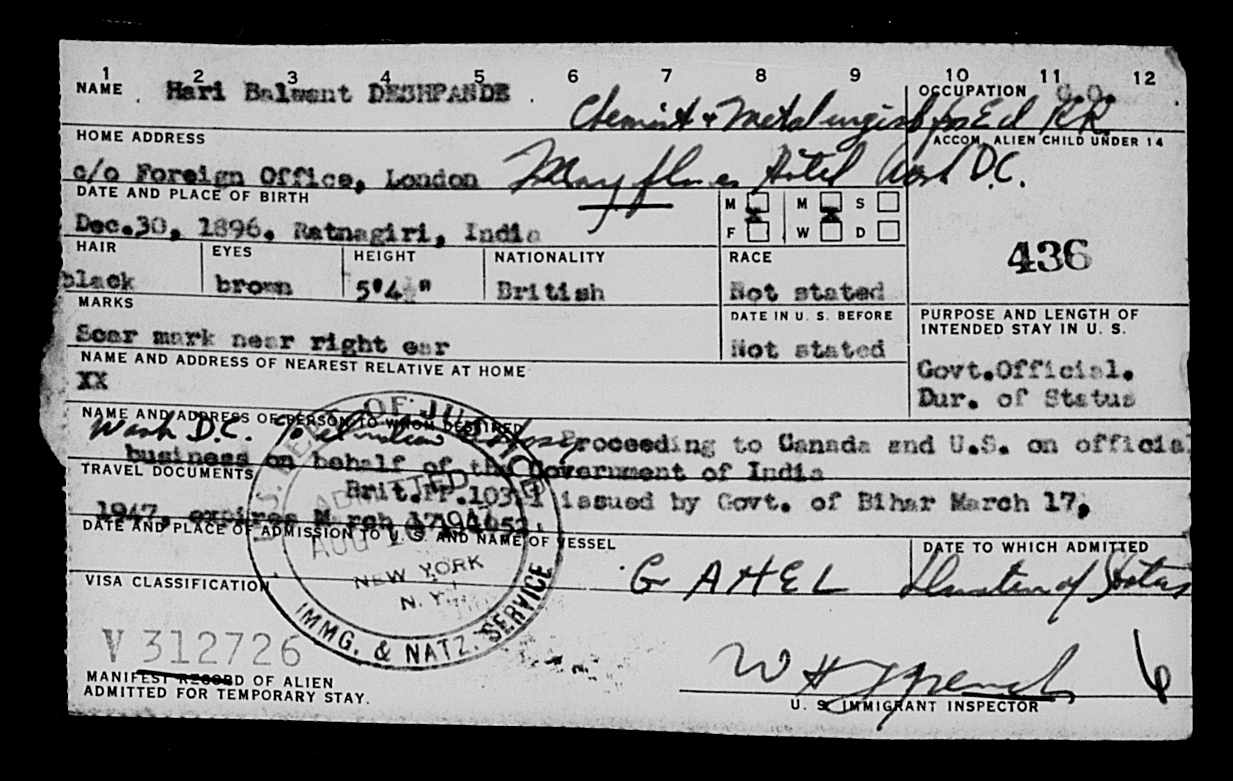 1 2 3 4 5 6 7 8 9 10 11 12
NAME Hari Balwant DESHPANDE OCCUPATION G.O.
Chemist & Metalurgist
HOME ADDRESS ACCOM. ALIEN CHILD UNDER 14
c/o Foreign Office, London Mayflower Hotel Wash D.C.
DATE AND PLACE OF BIRTH M M S
Dec.30, 1896. Ratnagiri, India F W D
436
HAIR EYES HEIGHT NATIONALITY RACE
black brown 5'4 " British Not stated
MARKS DATE IN U. S. BEFORE PURPOSE AND LENGTH OF INTENDED STAY IN U. S.
Scar mark near right ear Not stated
NAME AND ADDRESS OF NEAREST RELATIVE AT HOME Govt.Official.
XX Dur. of Status
NAME AND ADDRESS OF PERSON TO WHOM DESTINED
Wash D.C. To Indian Proceeding to Canada and U.S. on official
business on behalf of the Government of India
TRAVEL DOCUMENTS
Brit.PP. issued by Govt. of Bihar March 17,
1947, expires March
DATE AND PLACE OF ADMISSION TO U. S. AND NAME OF VESSEL DATE TO WHICH ADMITTED
OF JUSTICE
ADMITTED
AUG
NEW YORK
N. Y.
IMMG. & NATZ. SERVICE
G AHEL Duration of Status
VISA CLASSIFICATION
V 312726
MANIFEST RECORD OF ALIEN
ADMITTED FOR TEMPORARY STAY.
W H French 6
U. S. IMMIGRANT INSPECTOR